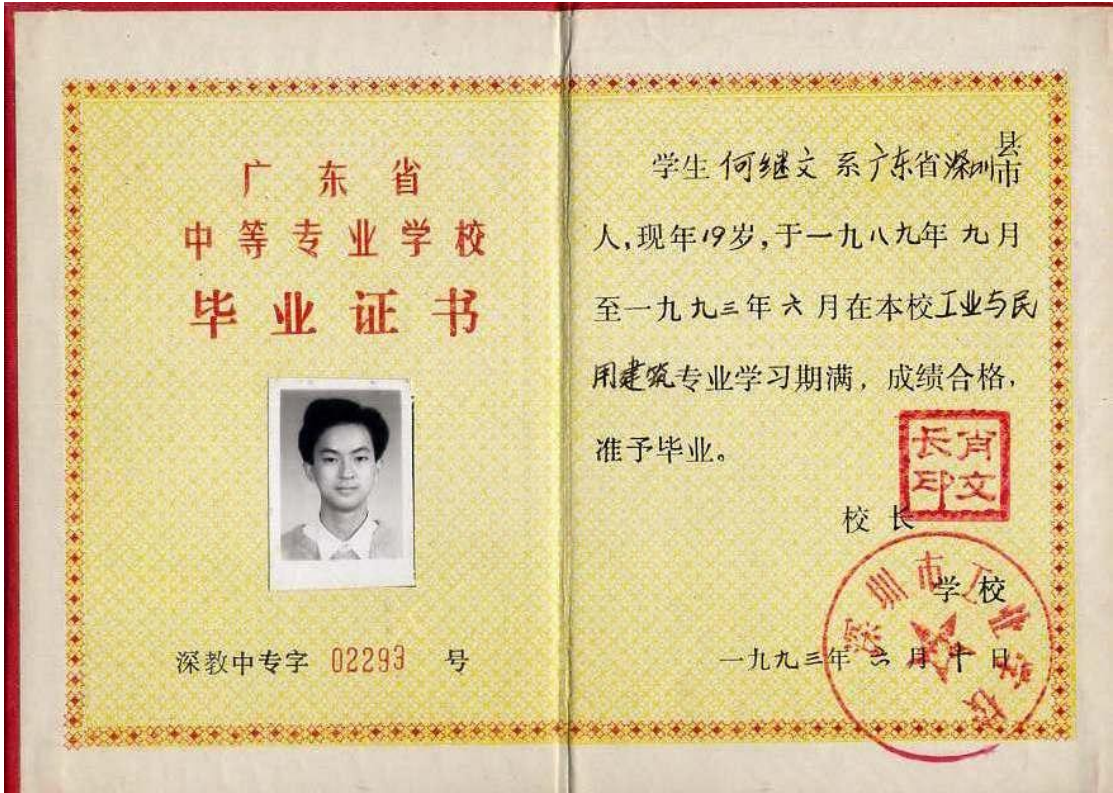 广东省
中等专业学校
毕业证书
深教中专字 02293 号
学生 何继文 系广东省深圳县市
人,现年19岁,于一九八九年 九月
至一九九三年六月在本校工业与民
用建筑专业学习期满，成绩合格，
准予毕业。
肖文长印
校长
深圳市工业学校
学校
一九九三年 六月 十日